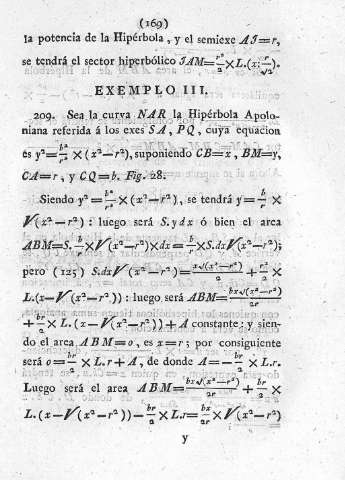 (169)
la potencia de la Hipérbola, y el semiexe AJ=r,
se tendrá el sector hiperbólico JAM=r²/2×L.(x:r/√2).
EXEMPLO III.
209. Sea la curva NAR la Hipérbola Apolo-
niana referida á los exes SA, PQ, cuya equacion
es y²=b²/r²×(x²−r²), suponiendo CB=x, BM=y,
CA=r, y CQ=b. Fig. 28.
Siendo y²=b²/r²×(x²−r²), se tendrá y=b/r×
√(x²−r²): luego será S.ydx ó bien el area
ABM=S.b/r×√(x²−r²)×dx=b/r×S.dx√(x²−r²);
pero (125) S.dx√(x²−r²)=x√(x²−r²)/2+r²/2×
L.(x−√(x²−r²)): luego será ABM=bx√(x²−r²)/2r
+br/2×L.(x−√(x²−r²))+A constante; y sien-
do el area ABM=0, es x=r; por consiguiente
será 0=br/2×L.r+A, de donde A=−br/2×L.r.
Luego será el area ABM=bx√(x²−r²)/2r+br/2×
L.(x−√(x²−r²))−br/2×L.r=bx/2r×√(x²−r²)
y